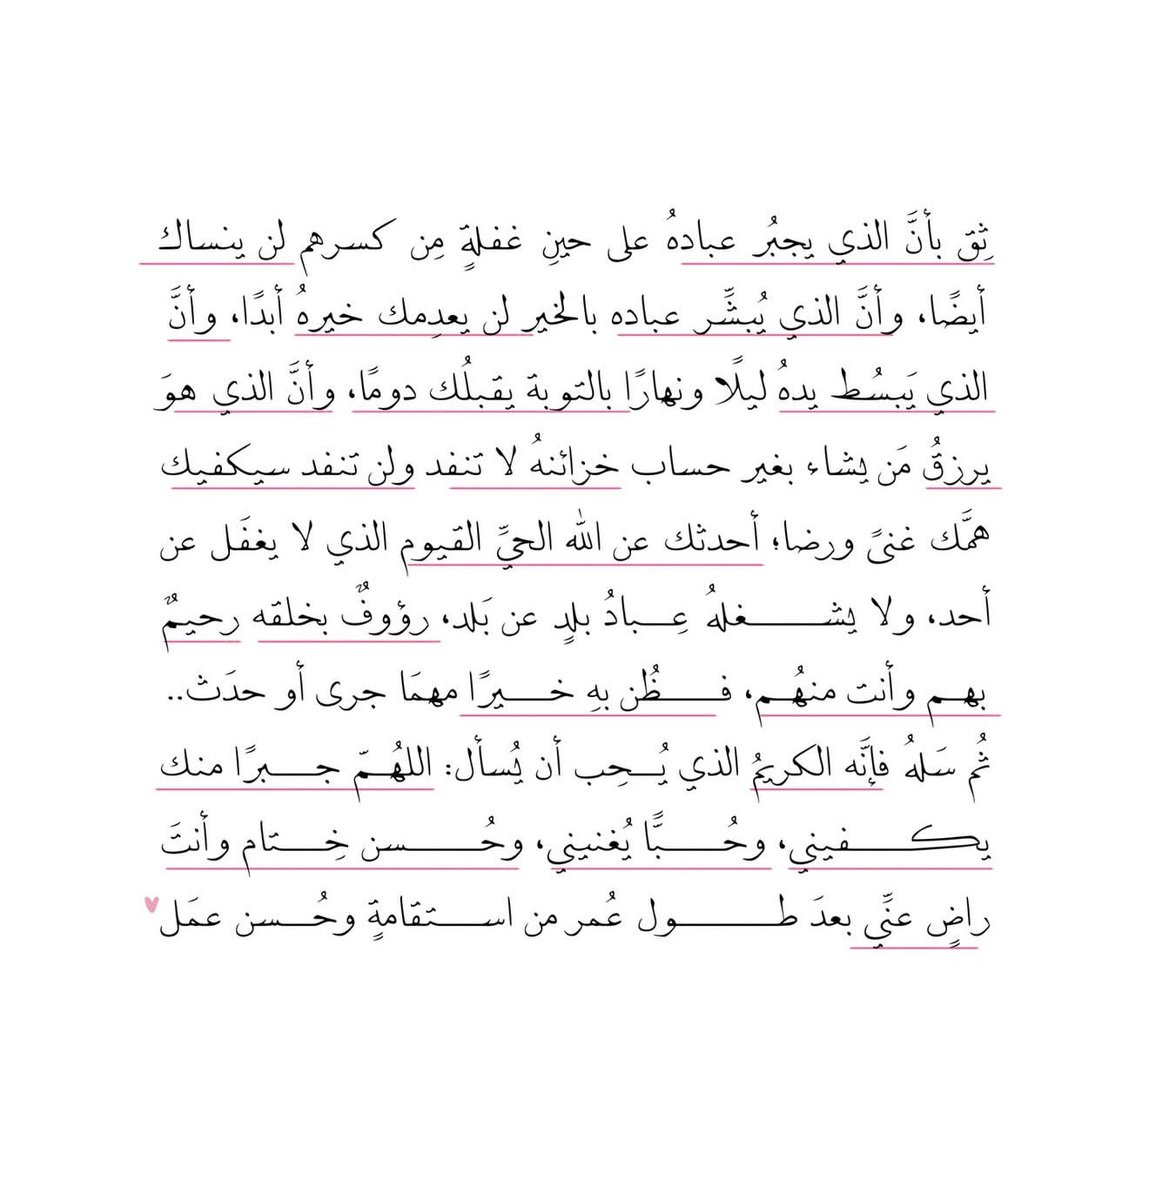 ثِق بأنَّ الذي يجبُر عبادهُ على حينِ غفلةٍ مِن كسرهم لن ينساك
أيضًا، وأنَّ الذي يُبشِّر عباده بالخير لن يعدِمك خيرهُ أبدًا، وأنَّ
الذي يَبسُط يدهُ ليلًا ونهارًا بالتوبة يقبلُك دومًا، وأنَّ الذي هوَ
يرزقُ مَن يشاء بغير حساب خزائنهُ لا تنفد ولن تنفد سيكفيك
همَّك غنىً ورضا؛ أحدثك عن الله الحيِّ القيوم الذي لا يغفَل عن
أحد، ولا يشـــــغلهُ عِـبادُ بلدٍ عن بَلد، رؤوفٌ بخلقه رحيمٌ
بهـم وأنت منهُـم، فــــظُن بهِ خـــيرًا مهمَا جرى أو حدَث..
ثُم سَلهُ فإنَّه الكريمُ الذي يُـحِب أن يُسأل: اللهُـمّ جـــبرًا منك
يكـــــفيني، وحُـــبًّا يُغنيني، وحُــــسن خِـــتام وأنتَ
راضٍ عنِّي بعدَ طـــــــول عُمر من اســــتقامةٍ وحُـــسن عمَل